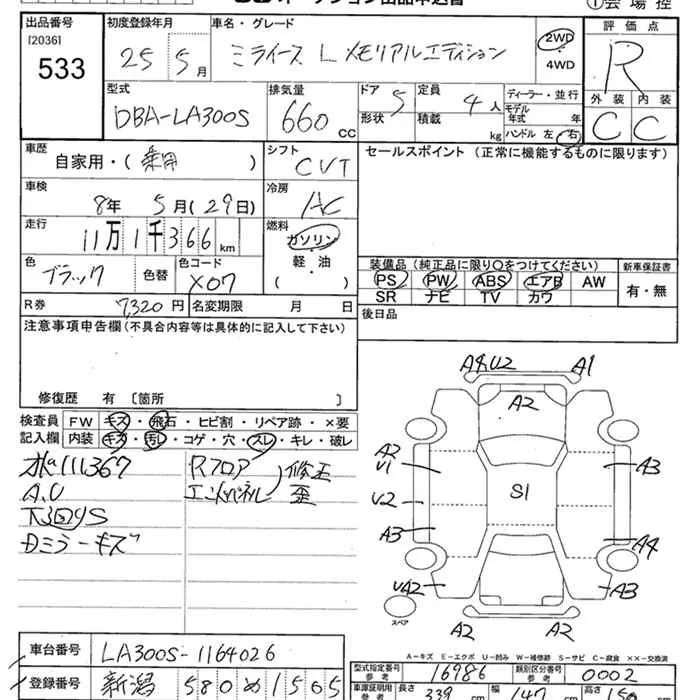 ①会場控
出品番号 初度登録年月 車名・グレード 評価点
[2036]
533 25 5月 ミライース L メモリアルエディション 2WD・4WD R
型式 排気量 ドア 定員 ディーラー・並行 外装 内装
DBA-LA300S 660cc 5 4人 モデル年式 年 C C
形状 積載 kg ハンドル 左 右
車歴 シフト セールスポイント (正常に機能するものに限ります)
自家用・(乗用) CVT
車検 冷房
8年 5月(29日) AC
走行 燃料
11万1千366km ガソリン
軽・油
( )
色 色替 色コード 装備品 (純正品に限り○をつけてください) 新車保証書
ブラック X07 PS PW ABS エアB AW 有・無
SR ナビ TV カワ
R券 7,320円 名変期限 月 日 後日品
注意事項申告欄 (不具合内容等は具体的に記入して下さい)
修復歴 有 [箇所 ]
検査員 FW キズ・飛石・ヒビ割・リペア跡・×要
記入欄 内装 キズ・汚レ・コゲ・穴・スレ・キレ・破レ
111367 Rフロア 修正
A.U エンドパネル 歪
下回りS
Dミラーキズ
A4.U2 A1
A2
A2
U1 A3
U2 S1
A3 A4
UA2 A3
スペア A2 A2
A-キズ E-エクボ U-凹み W-補修跡 S-サビ C-腐食 XX-交換済
車台番号 LA300S-1164026
型式指定番号 参考 16986 類別区分番号 参考 0002
登録番号 新潟 580 め 1505
車庫証明用 参考 長さ 339 幅 147 高さ